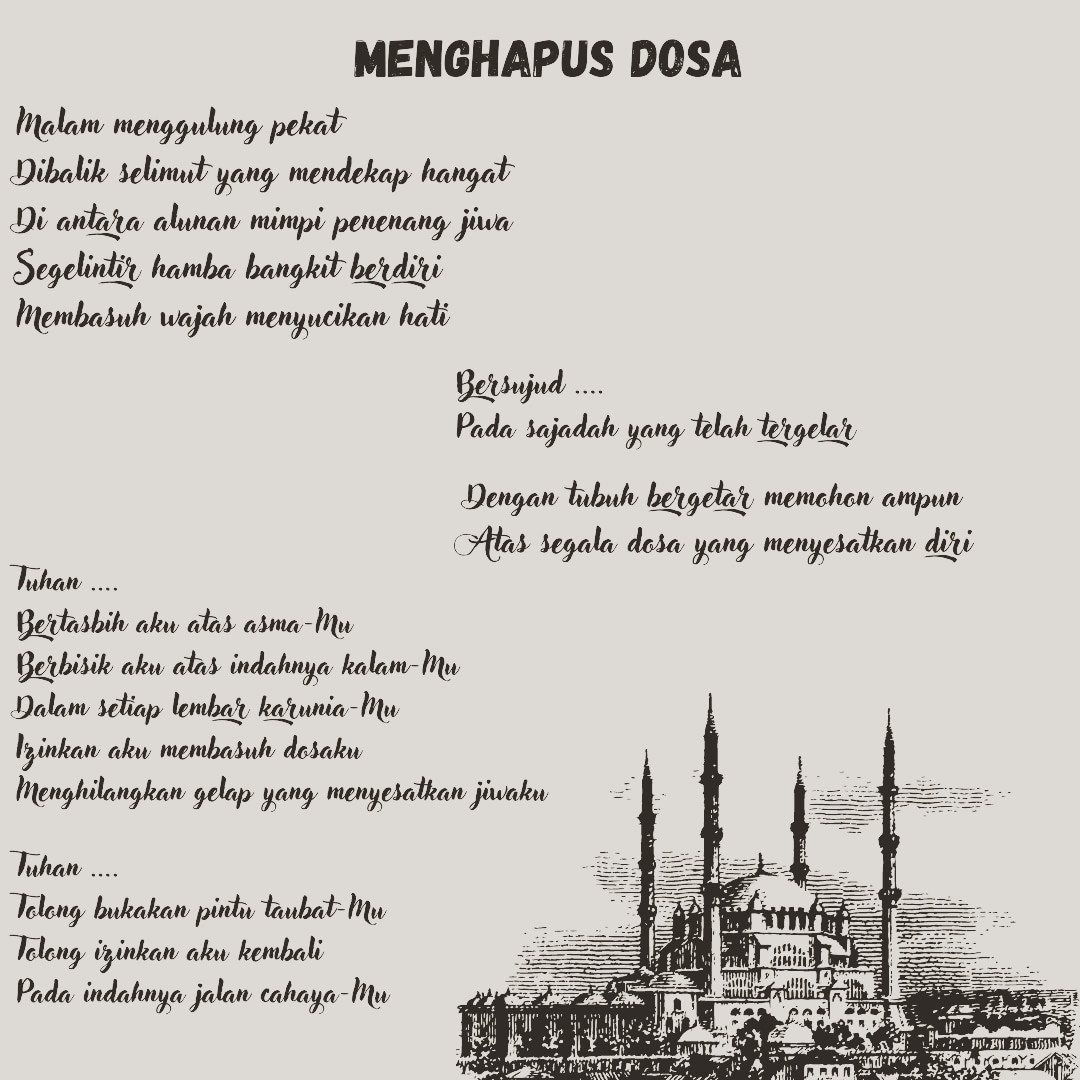 MENGHAPUS DOSA
Malam menggulung pekat
Dibalik selimut yang mendekap hangat
Di antara alunan mimpi penenang jiwa
Segelintir hamba bangkit berdiri
Membasuh wajah menyucikan hati
Bersujud ....
Pada sajadah yang telah tergelar
Dengan tubuh bergetar memohon ampun
Atas segala dosa yang menyesatkan diri
Tuhan ....
Bertasbih aku atas asma-Mu
Berbisik aku atas indahnya kalam-Mu
Dalam setiap lembar karunia-Mu
Izinkan aku membasuh dosaku
Menghilangkan gelap yang menyesatkan jiwaku
Tuhan ....
Tolong bukakan pintu taubat-Mu
Tolong izinkan aku kembali
Pada indahnya jalan cahaya-Mu